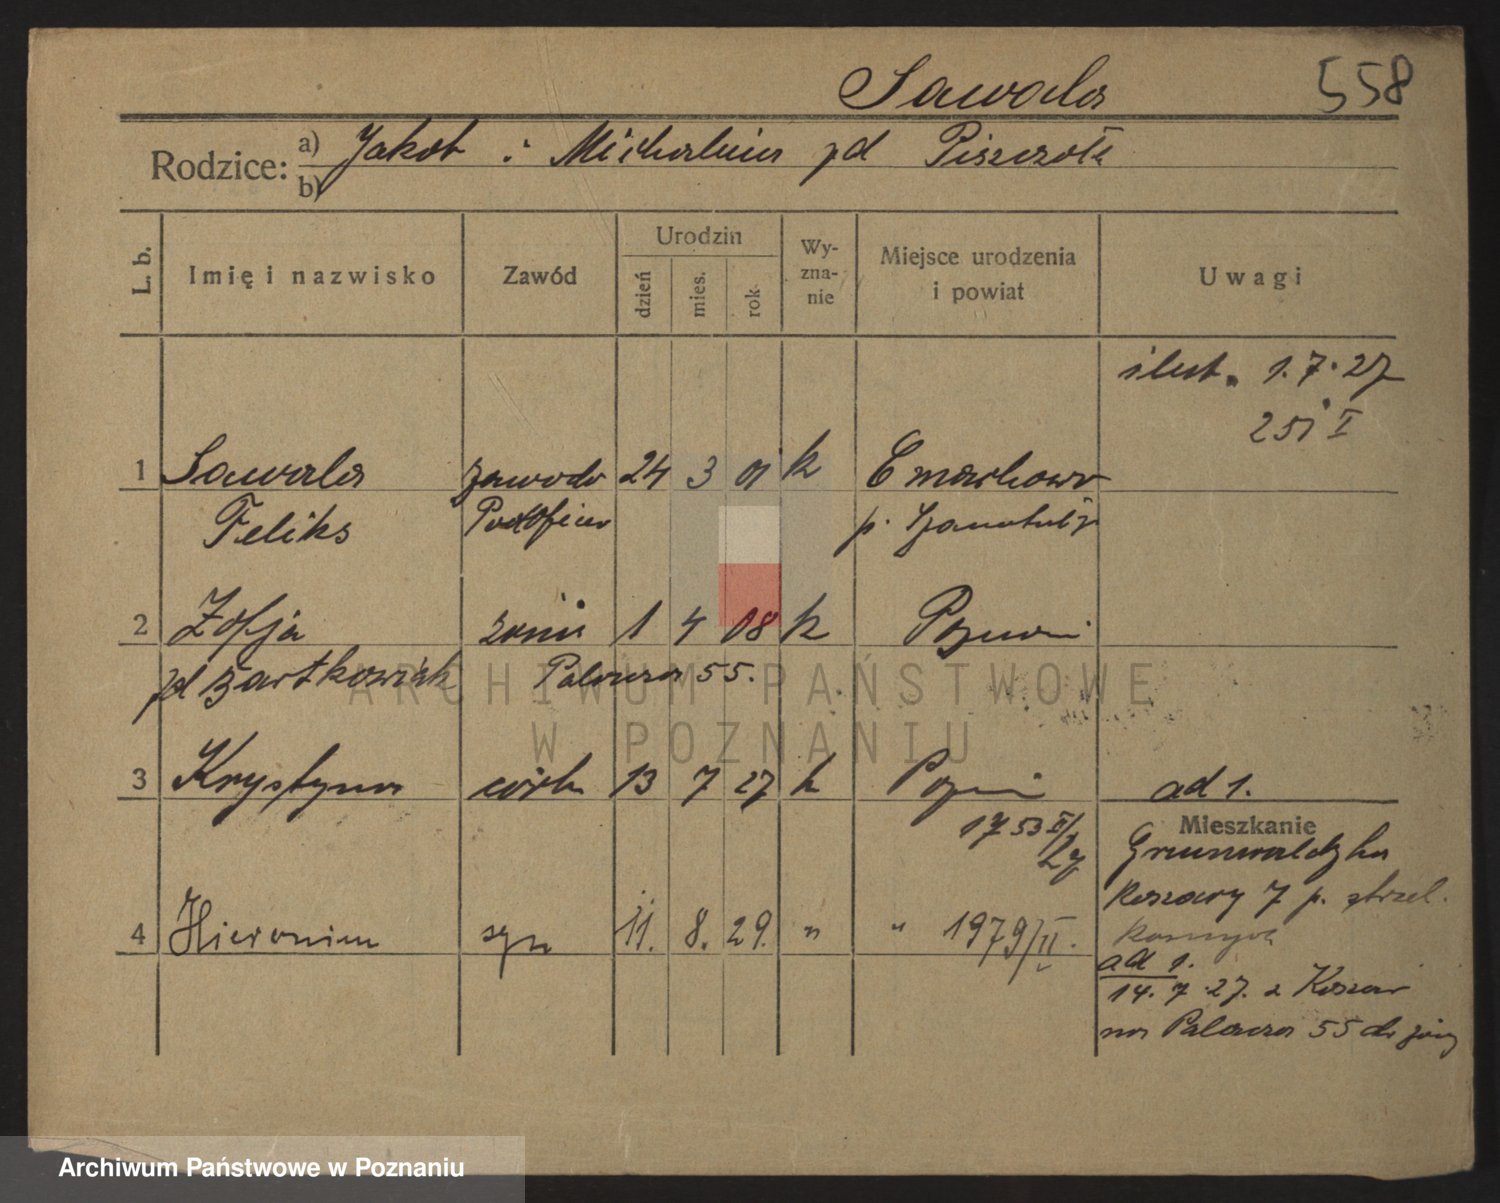 Sawala 558
Rodzice: a) Jakob i Michalina zd Piszczoła
b)
L. b. Imię i nazwisko Zawód Urodzin dzień mies. rok Wy-zna-nie Miejsce urodzenia i powiat Uwagi
1.7.27
251 I
1 Sawala zawodo 24 3 01 k Cmachowo
Feliks Podoficer p. Szamotuły
2 Zofja żona 1 4 08 k Poznań
zd Bartkowiak Palacza 55.
ARCHIWUM PAŃSTWOWE
W POZNANIU
3 Krystyna córka 13 7 27 k Pozn ad 1.
1753 II/27
Mieszkanie
Grunwaldzka
Koszary 7 p. strzel.
konnych
4 Hieronim syn 11. 8. 29. " " 1979/II.
ad 1.
14. 7. 27. z Koszar
na Palacza 55 do żony
Archiwum Państwowe w Poznaniu